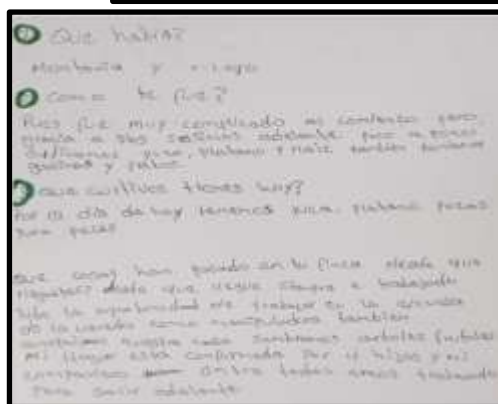 Que había?
Montaña y
como te fue?
Pues fue muy complicado al comienzo pero
gracia a dios salimos adelante poco a poco
yuca, platano y maiz tambien tenemos
gallinas y patos
que cultivos tienes hoy?
Por el día de hoy tenemos yuca, platano pozas
para peces
que cosas han pasado en tu finca desde que
llegaste? desde que llegue siempre e trabajado
tube la oportunidad de trabajar en la escuela
de la vereda como manipuladora tambien
nuestra casa sembramos arboles frutales
mi hogar esta conformado por hijos y mi
compañero entre todos trabajando
para salir adelante